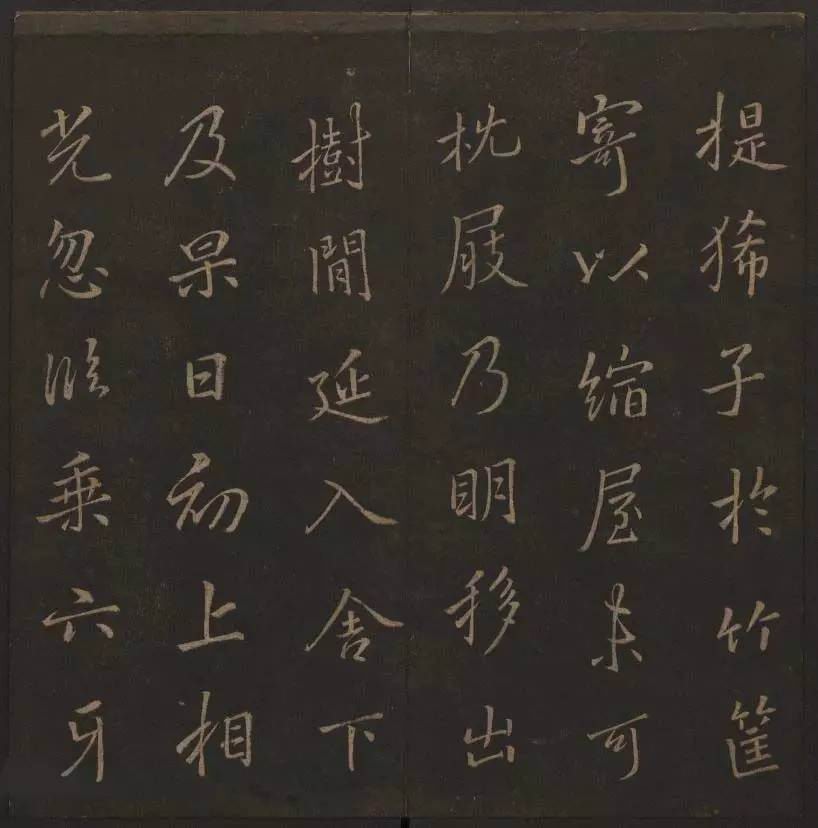 提狶子於竹筐
寄以縮屋未可
枕屐乃明移出
樹閒延入舍下
及杲日初上相
光忽臨乘六牙